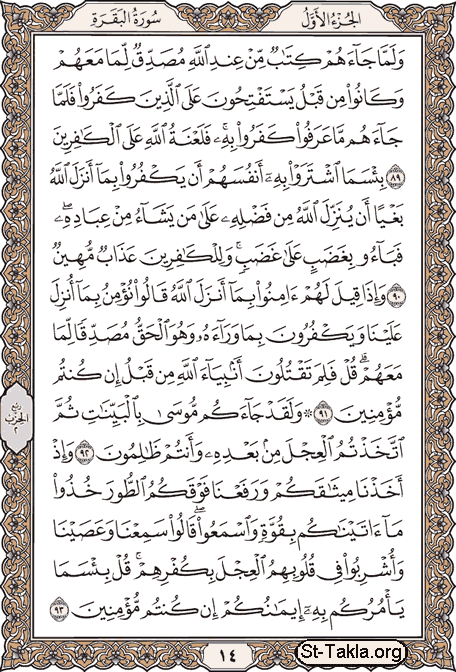 الجُزْءُ الأَوَّلُ
سُورَةُ البَقَرَةِ
وَلَمَّا جَآءَهُمْ كِتَٰبٌ مِّنْ عِندِ ٱللَّهِ مُصَدِّقٌ لِّمَا مَعَهُمْ
وَكَانُوا۟ مِن قَبْلُ يَسْتَفْتِحُونَ عَلَى ٱلَّذِينَ كَفَرُوا۟ فَلَمَّا
جَآءَهُم مَّا عَرَفُوا۟ كَفَرُوا۟ بِهِۦۚ فَلَعْنَةُ ٱللَّهِ عَلَى ٱلْكَٰفِرِينَ
٨٩ بِئْسَمَا ٱشْتَرَوْا۟ بِهِۦٓ أَنفُسَهُمْ أَن يَكْفُرُوا۟ بِمَآ أَنزَلَ ٱللَّهُ
بَغْيًا أَن يُنَزِّلَ ٱللَّهُ مِن فَضْلِهِۦ عَلَىٰ مَن يَشَآءُ مِنْ عِبَادِهِۦۖ
فَبَآءُو بِغَضَبٍ عَلَىٰ غَضَبٍۚ وَلِلْكَٰفِرِينَ عَذَابٌ مُّهِينٌ
٩٠ وَإِذَا قِيلَ لَهُمْ ءَامِنُوا۟ بِمَآ أَنزَلَ ٱللَّهُ قَالُوا۟ نُؤْمِنُ بِمَآ أُنزِلَ
عَلَيْنَا وَيَكْفُرُونَ بِمَا وَرَآءَهُۥ وَهُوَ ٱلْحَقُّ مُصَدِّقًا لِّمَا
مَعَهُمْۗ قُلْ فَلِمَ تَقْتُلُونَ أَنۢبِيَآءَ ٱللَّهِ مِن قَبْلُ إِن كُنتُم
مُّؤْمِنِينَ ٩١ ۞ وَلَقَدْ جَآءَكُم مُّوسَىٰ بِٱلْبَيِّنَٰتِ ثُمَّ
ٱتَّخَذْتُمُ ٱلْعِجْلَ مِنۢ بَعْدِهِۦ وَأَنتُمْ ظَٰلِمُونَ ٩٢ وَإِذْ
أَخَذْنَا مِيثَٰقَكُمْ وَرَفَعْنَا فَوْقَكُمُ ٱلطُّورَ خُذُوا۟
مَآ ءَاتَيْنَٰكُم بِقُوَّةٍ وَٱسْمَعُوا۟ۖ قَالُوا۟ سَمِعْنَا وَعَصَيْنَا
وَأُشْرِبُوا۟ فِى قُلُوبِهِمُ ٱلْعِجْلَ بِكُفْرِهِمْۚ قُلْ بِئْسَمَا
يَأْمُرُكُم بِهِۦٓ إِيمَٰنُكُمْ إِن كُنتُم مُّؤْمِنِينَ ٩٣
ربع
الحزب
٢
١٤
St-Takla.org